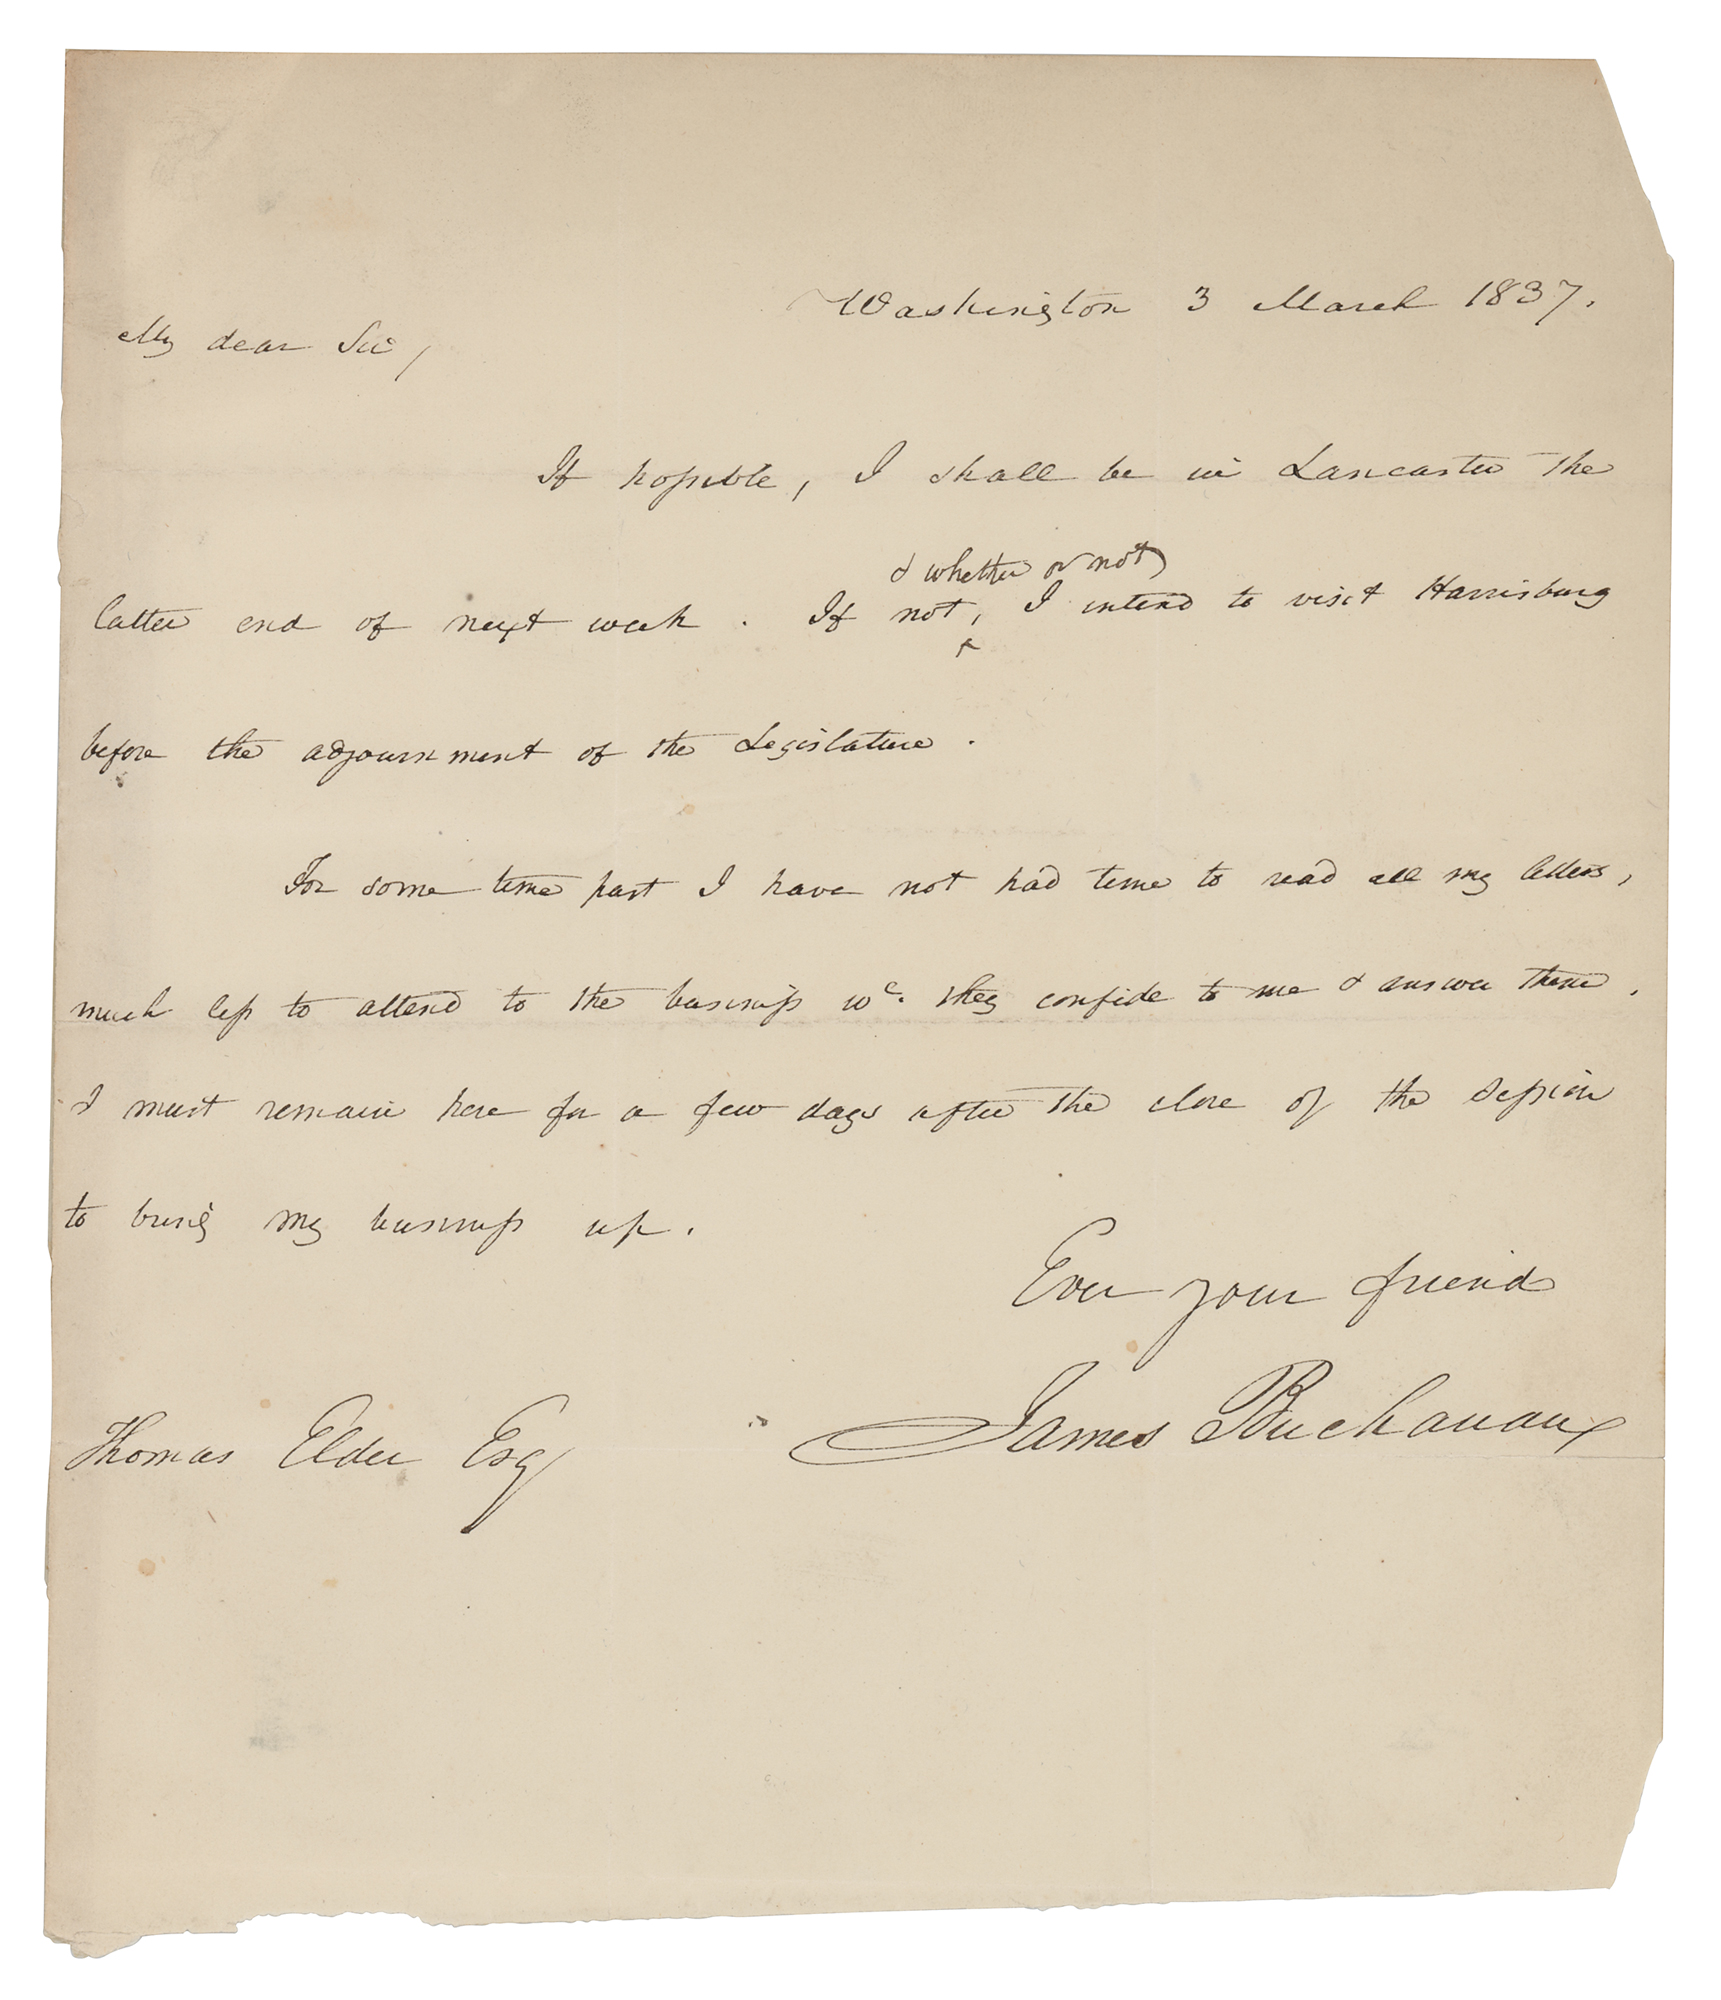 Washington 3 March 1837.
My dear Sir,
If possible, I shall be in Lancaster the
& whether or not
latter end of next week. If not, ^ I intend to visit Harrisburg
before the adjournment of the Legislature.
For some time past I have not had time to read all my letters,
much less to attend to the business wc. they confide to me & answer them.
I must remain here for a few days after the close of the Session
to bring my business up.
Ever your friend
James Buchanan
Thomas Elder Esq